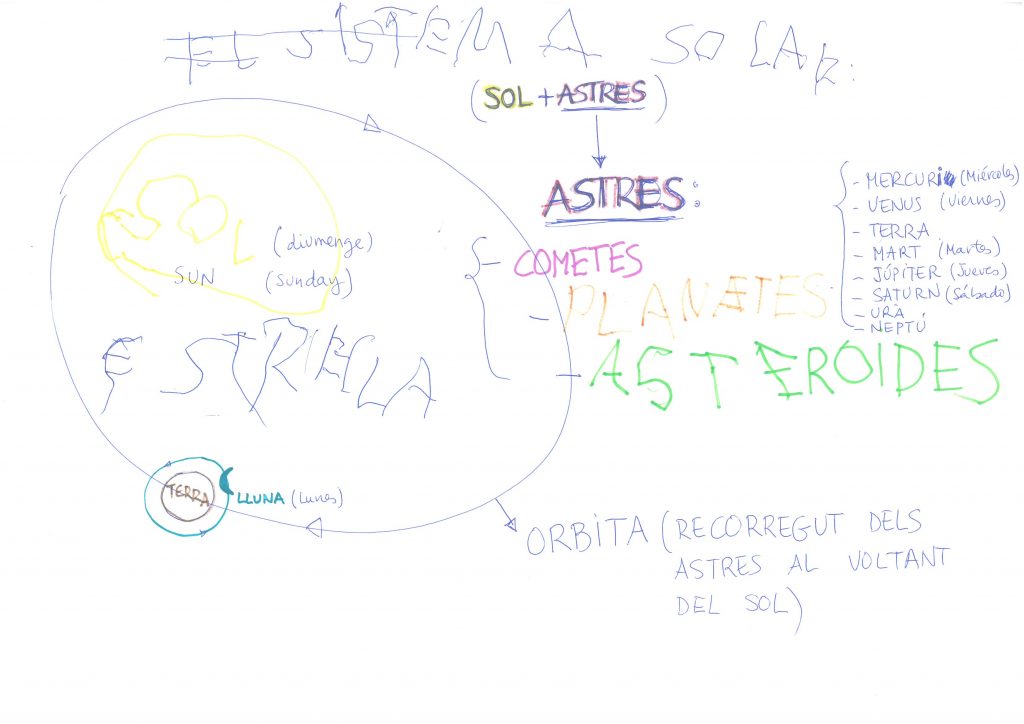 EL SISTEMA SOLAR:
(SOL + ASTRES)
ASTRES:
- COMETES
- PLANETES:
- ASTEROIDES
- MERCURI (Miércoles)
- VENUS (Viernes)
- TERRA
- MART (Martes)
- JÚPITER (Jueves)
- SATURN (Sábado)
- URÀ
- NEPTÚ
SOL (diumenge)
SUN (Sunday)
ESTRELLA
TERRA
LLUNA (Lunes)
ORBITA (RECORREGUT DELS
ASTRES AL VOLTANT
DEL SOL)